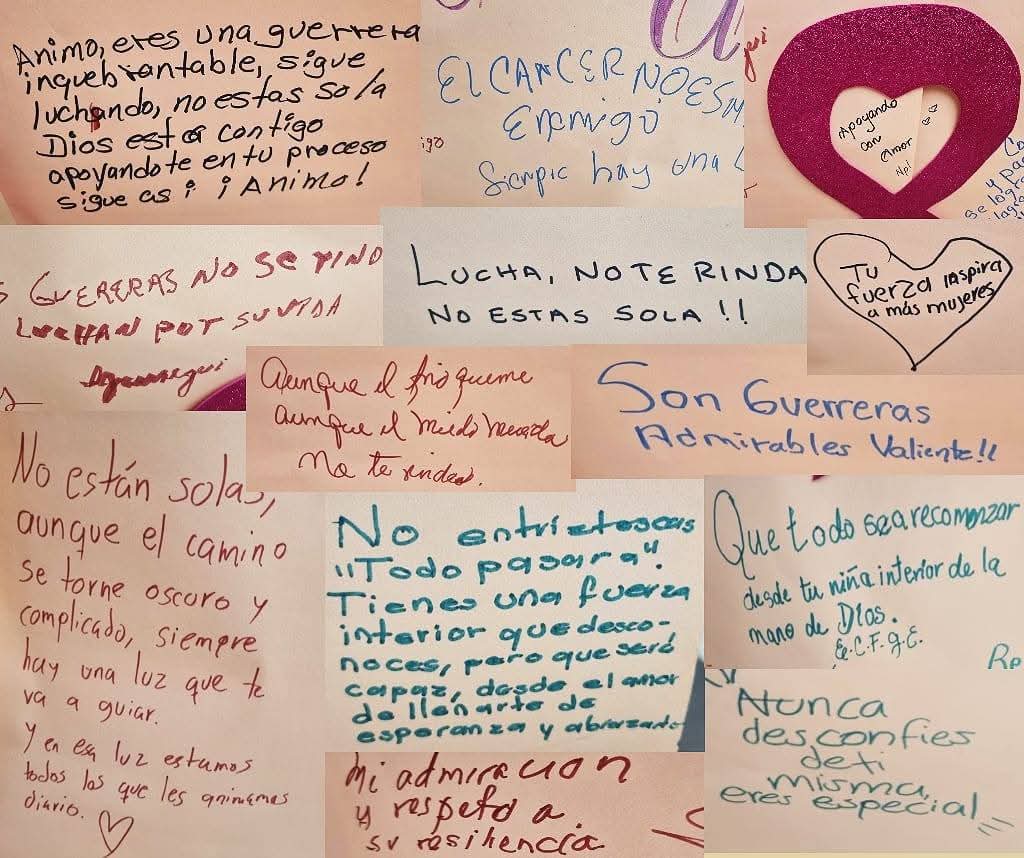 Animo, eres una guerrera
inquebrantable, sigue
luchando, no estas sola
Dios esta contigo
apoyandote en tu proceso
sigue asi ¡Animo!
EL CANCER NO ES M
Enemigo
Siempre hay una
Apoyando
con
Amor
Np!
Co
y pa
se logra
igo
GUERERAS NO SE RIND
LUCHAN POR SU VIDA
LUCHA, NO TE RINDA
NO ESTAS SOLA!!
Tu
fuerza inspira
a más mujeres
Aunque el frio queme
aunque el miedo muerda
no te rindas.
Son Guerreras
Admirables Valiente!!
No están solas,
aunque el camino
se torne oscuro y
complicado, siempre
hay una luz que te
va a guiar.
Y en esa luz estamos
todos los que les animamos
diario.
No entristescas
"Todo pasara".
Tienes una fuerza
interior que desco-
noces, pero que será
capaz, desde el amor
de llenarte de
esperanza y abrazarte
Que todo sea recomenzar
desde tu niña interior de la
mano de Dios.
E.C.F.G.E.
Re
mi admiracion
y respeto a
su resiliencia
Nunca
desconfies
de ti
misma,
eres especial